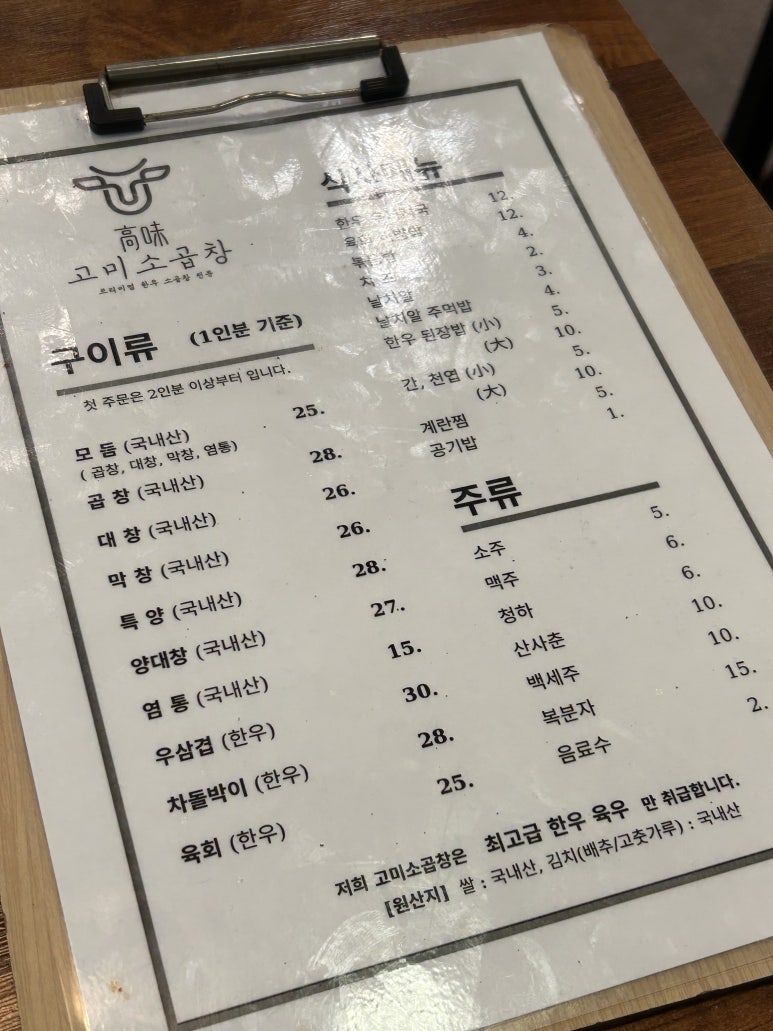 高味
고미소곱창
프리미엄 한우 소곱창 전문
구이류 (1인분 기준)
첫 주문은 2인분 이상부터 입니다.
모 듬 (국내산) 25.
( 곱창, 대창, 막창, 염통)
곱 창 (국내산) 28.
대 창 (국내산) 26.
막 창 (국내산) 26.
특 양 (국내산) 28.
양대창 (국내산) 27.
염 통 (국내산) 15.
우삼겹 (한우) 30.
차돌박이 (한우) 28.
육회 (한우) 25.
식사메뉴
한우 12.
12.
4.
2.
날치알 3.
날치알 주먹밥 4.
한우 된장밥 (小) 5.
(大) 10.
간, 천엽 (小) 5.
(大) 10.
계란찜 5.
공기밥 1.
주류
소주 5.
맥주 6.
청하 6.
산사춘 10.
백세주 10.
복분자 15.
음료수 2.
저희 고미소곱창은 최고급 한우 육우 만 취급합니다.
[원산지] 쌀 : 국내산, 김치(배추/고춧가루) : 국내산